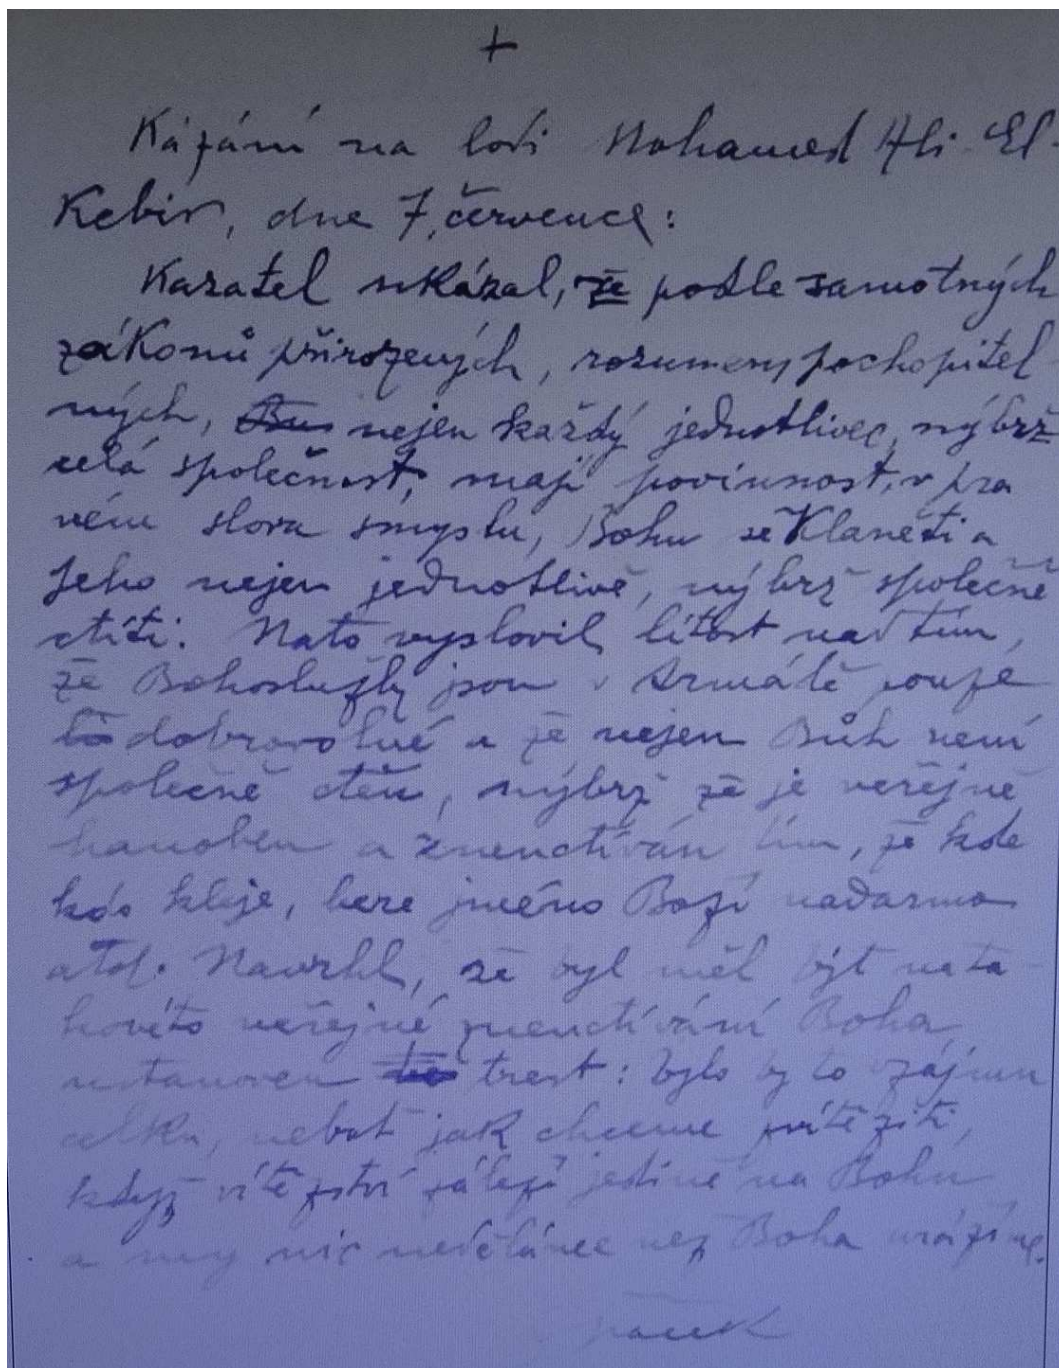 +
Kázání na lodi Mohamed Ali-El-
Kebir, dne 7. července:
Kazatel ukázal, že podle samotných
zákonů přirozených, rozumem pochopitel-
ných, nejen každý jednotlivec, nýbrž
celá společnost, mají povinnost, v pra
vém slova smyslu, Bohu se klaněti a
Jeho nejen jednotlivě, nýbrž společně
ctíti. Nato vyslovil lítost nad tím,
že Bohoslužby jsou v Armátě pouze
dobrovolné a že nejen Bůh není
společně ctěn, nýbrž že je veřejně
hanoben a zneuctíván tím, že kde
kdo kleje, bere jméno Boží nadarmo
atd. Navrhl, že by měl být na ta-
kovéto veřejné zneuctívání Boha
ustanoven trest: bylo by to v zájmu
celku, neboť jak chceme zvítěziti,
když vítězství záleží jedině na Bohu
a my nic neděláme než Boha urážíme.